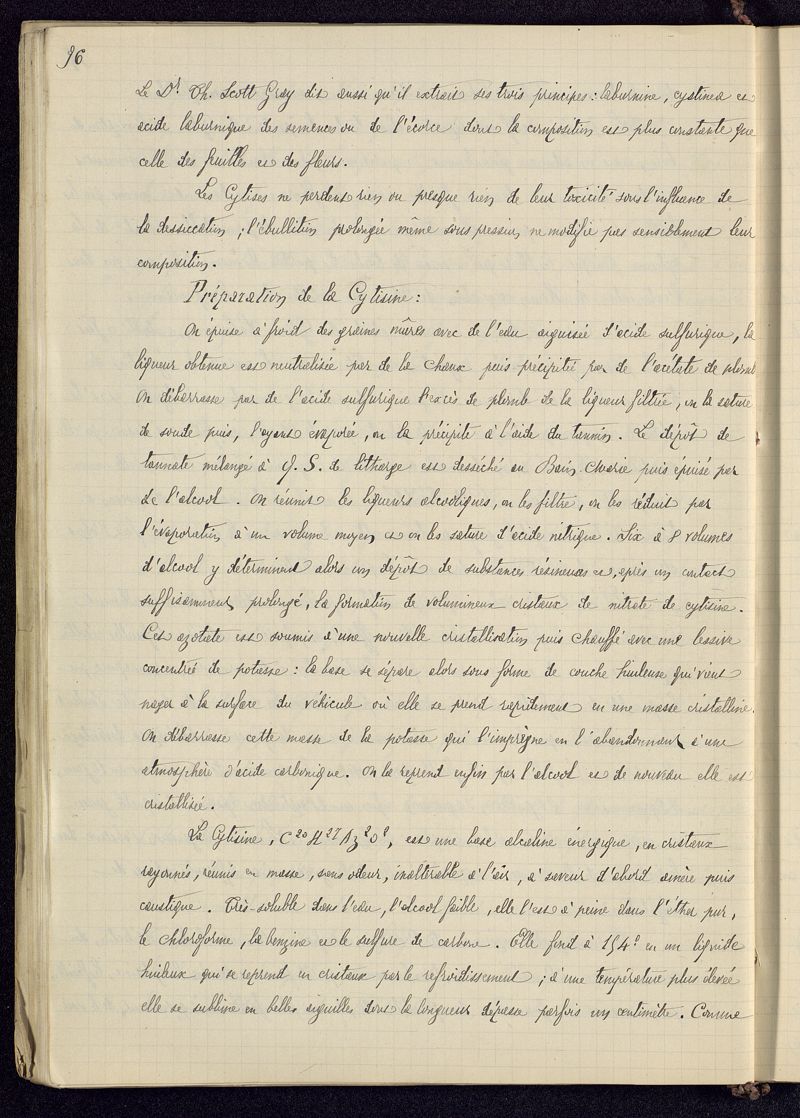 96
Le Dr Th. Scott Gray dit aussi qu'il extrait ses trois principes : laburnine, cystinea et
acide laburnique des semences ou de l'écorce dont la composition est plus constante que
celle des feuilles et des fleurs.
Les Cytises ne perdent rien ou presque rien de leur toxicité sous l'influence de
la dessiccation ; l'ébullition prolongée même sous pression, ne modifie pas sensiblement leur
composition.
Préparation de la Cytisine :
On épuise à froid des graines mûres avec de l'eau aiguisée d'acide sulfurique, la
liqueur obtenue est neutralisée par de la chaux puis précipitée par de l'acétate de plomb
On débarrasse par de l'acide sulfurique l'excès de plomb de la liqueur filtrée, on la sature
de soude puis, l'ayant évaporée, on la précipite à l'aide du tannin. Le dépôt de
tannate mélangé à Q. S. de litharge est desséché au Bain-Marie puis épuisé par
de l'alcool. On réunit les liqueurs alcooliques, on les filtre, on les réduit par
l'évaporation à un volume moyen et on les sature d'acide nitrique. Six à 8 volumes
d'alcool y déterminent alors un dépôt de substances résineuses et, après un contact
suffisamment prolongé, la formation de volumineux cristaux de nitrate de cytisine.
Cet azotate est soumis à une nouvelle cristallisation puis chauffé avec une lessive
concentrée de potasse : la base se sépare alors sous forme de couche huileuse qui vient
nager à la surface du véhicule où elle se prend rapidement en une masse cristalline.
On débarrasse cette masse de la potasse qui l'imprègne en l'abandonnant à une
atmosphère d'acide carbonique. On la reprend enfin par l'alcool et de nouveau elle est
cristallisée.
La Cytisine, C²⁰H²⁷Az²O², est une base alcaline énergique, en cristaux
rayonnés, réunis en masse, sans odeur, inaltérable à l'air, à saveur d'abord amère puis
caustique. Très-soluble dans l'eau, l'alcool faible, elle l'est à peine dans l'éther pur,
le chloroforme, la benzine et le sulfure de carbone. Elle fond à 154° en un liquide
huileux qui se reprend en cristaux par le refroidissement ; à une température plus élevée
elle se sublime en belles aiguilles dont la longueur dépasse parfois un centimètre. Comme